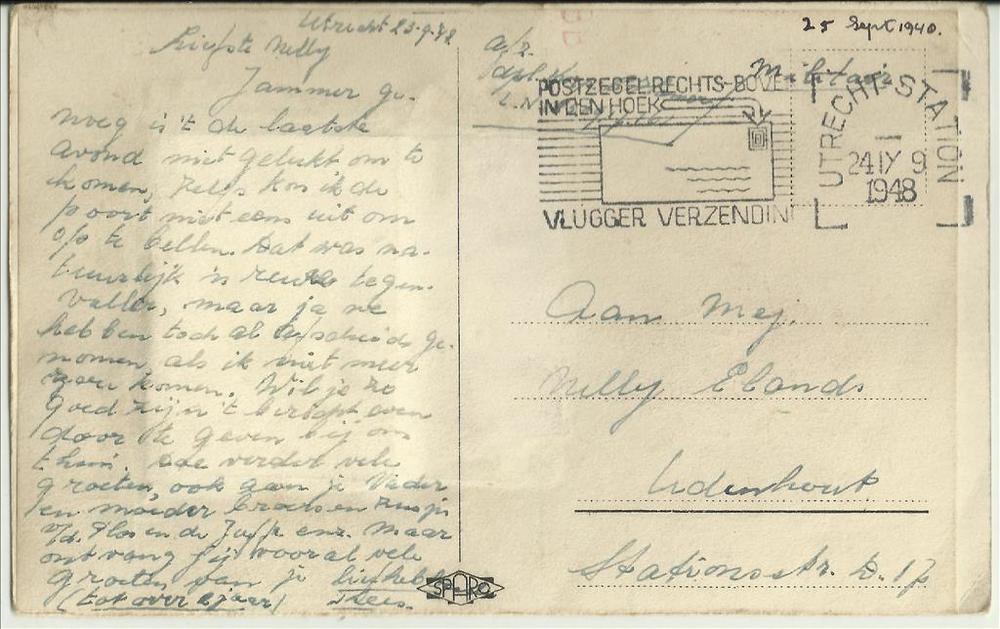 Utrecht 23-9-48
Liefste Nelly
Jammer ge-
noeg is 't de laatste
avond niet gelukt om te
komen, zelfs kon ik de
poort niet eens uit om
op te bellen. Dat was na-
tuurlijk 'n reuze tegen-
valler, maar ja we
hebben toch al afscheid ge-
nomen, als ik niet meer
zou komen. Wil je zo
goed zijn 't bericht even
door te geven bij ons
thuis. verder vele
groeten, ook aan je Vader
en moeder broers en zusjes
v/d. en de enz. Maar
ontvang jij vooral vele
groeten van je liefheb.
(tot over 2 jaar) Kees.
SPARO
25 Sept 1940.
a/z.
Militair
POSTZEGEL RECHTS-BOVE
IN DEN HOEK
VLUGGER VERZENDIN
UTRECHT-STATION
24 IX 9
1948
Aan Mej.
Nelly Elands
Udenhout
Stationsstr. D. 17